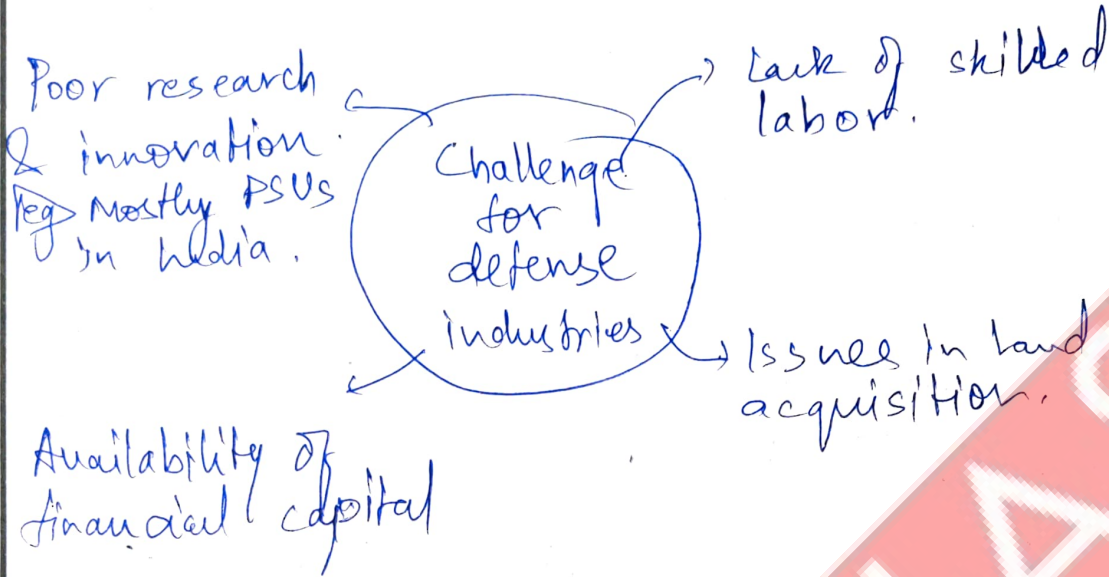 Poor research
& innovation.
eg> Mostly PSUs
in India.
Challenge
for
defense
industries
Lack of skilled
labor.
Issues in land
acquisition.
Availability of
financial capital